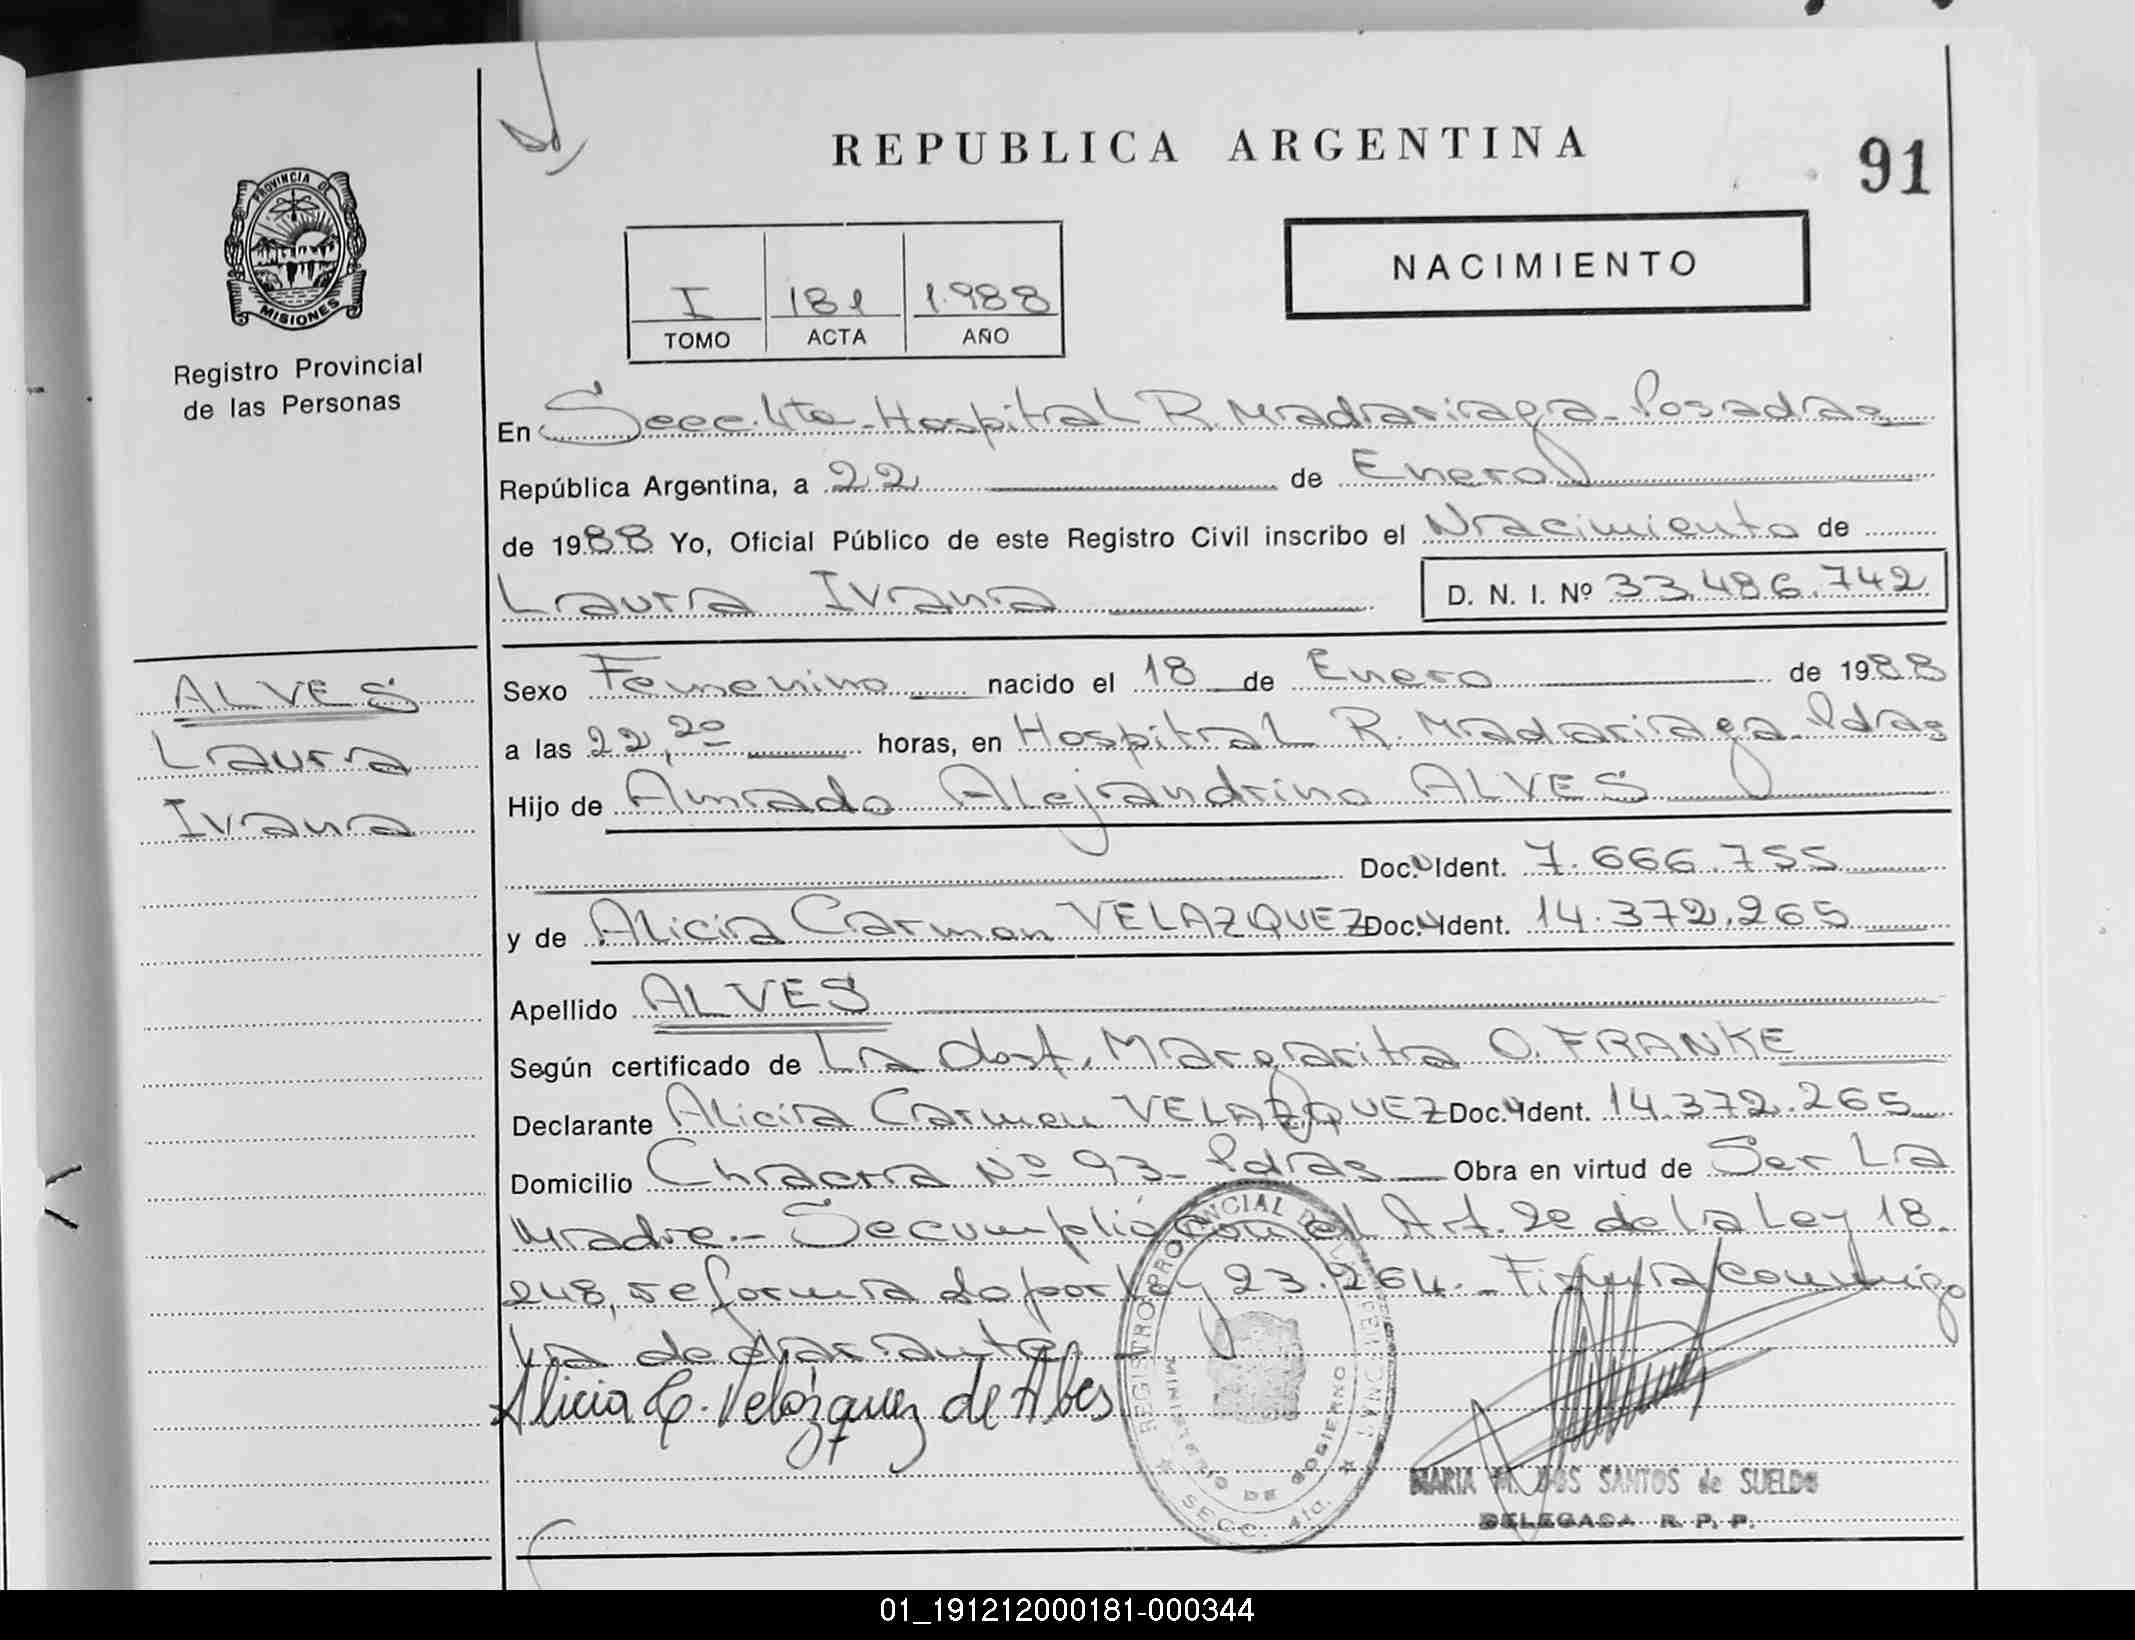 REPUBLICA ARGENTINA
91
PROVINCIA DE
MISIONES
Registro Provincial
de las Personas
I 181 1.988
TOMO ACTA AÑO
NACIMIENTO
En Secc. 4ta - Hospital R. Madariaga - Posadas
República Argentina, a 22 de Enero
de 1988 Yo, Oficial Público de este Registro Civil inscribo el Nacimiento de
Laura Ivana D. N. I. Nº 33.486.742
ALVES
Laura
Ivana
Sexo Femenino nacido el 18 de Enero de 1988
a las 22,20 horas, en Hospital R. Madariaga - Pdas
Hijo de Amado Alejandrino ALVES
Doc. Ident. 7.666.755
y de Alicia Carmen VELAZQUEZ Doc. Ident. 14.372.265
Apellido ALVES
Según certificado de La doct. Margarita O. FRANKE
Declarante Alicia Carmen VELAZQUEZ Doc. Ident. 14.372.265
Domicilio Chacra Nº 93 - Pdas Obra en virtud de Ser La
Madre.- Se cumplió con el Art. 2º de la Ley 18.
248, reformado por Ley 23.264.- Firma conmigo
La declarante
Alicia C. Velázquez de Alves
REGISTRO PROVINCIAL DE LAS PERSONAS
MINISTERIO DE GOBIERNO
SECC. 4ta.
MARIA M. DOS SANTOS de SUELDO
DELEGADA R. P. P.
01_191212000181-000344